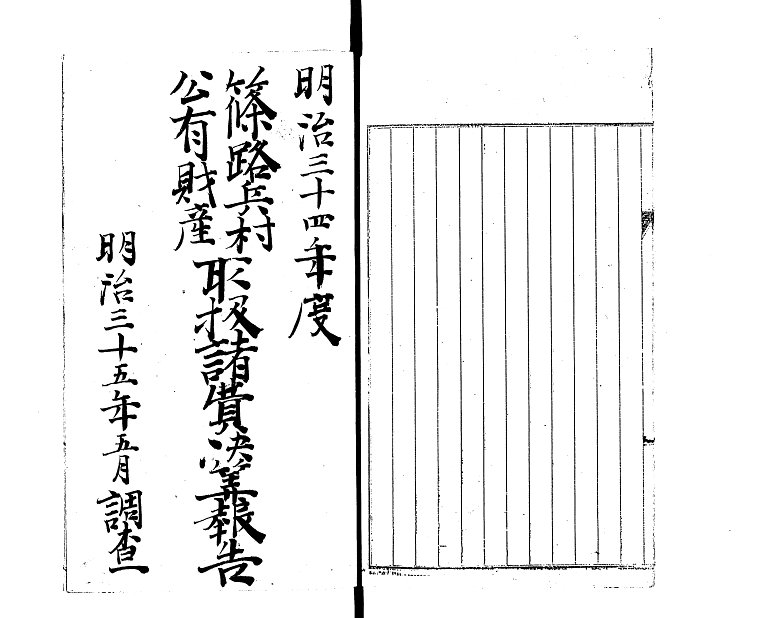 明治三十四年度
篠路兵村
公有財産
取扱諸費決算報告
明治三十五年五月調査